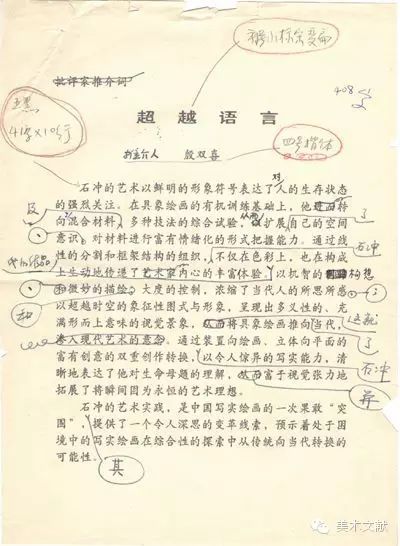 408
批评家推介词
五黑
41字×105行
超越语言
主介人 殷双喜
四号楷体
石冲的艺术以鲜明的形象符号表达了对人的生存状态
的强烈关注。在具象绘画的有机训练基础上,他转
向混合材料、多种技法的综合试验,扩展自己的空间
意识,对材料进行富有情绪化的形式把握能力。通过线
性的分割和框架结构的组织,不仅在色彩上,也在构成
上生动地传递了艺术家内心的丰富体验,以机智的构想
和微妙的描绘,大度的控制,浓缩了当代人的所思所感
以超越时空的象征性图式与形象,呈现出多义性的、充
满形而上意味的视觉景象,从而将具象绘画推向当代,
渗入现代艺术的意念。通过装置向绘画、立体向平面的
富有创意的双重创作转换,以令人惊异的写实能力,清
晰地表达了他对生命母题的理解,从而富于视觉张力地
拓展了将瞬间因为永恒的艺术理想。
及
了
石冲
和
这就
了
石冲
并
石冲的艺术实践,是中国写实绘画的一次果敢“突
围”,提供了一个令人深思的变革线索,预示着处于困
境中的写实绘画在综合性的探索中从传统向当代转换的
可能性。
其
美术文献